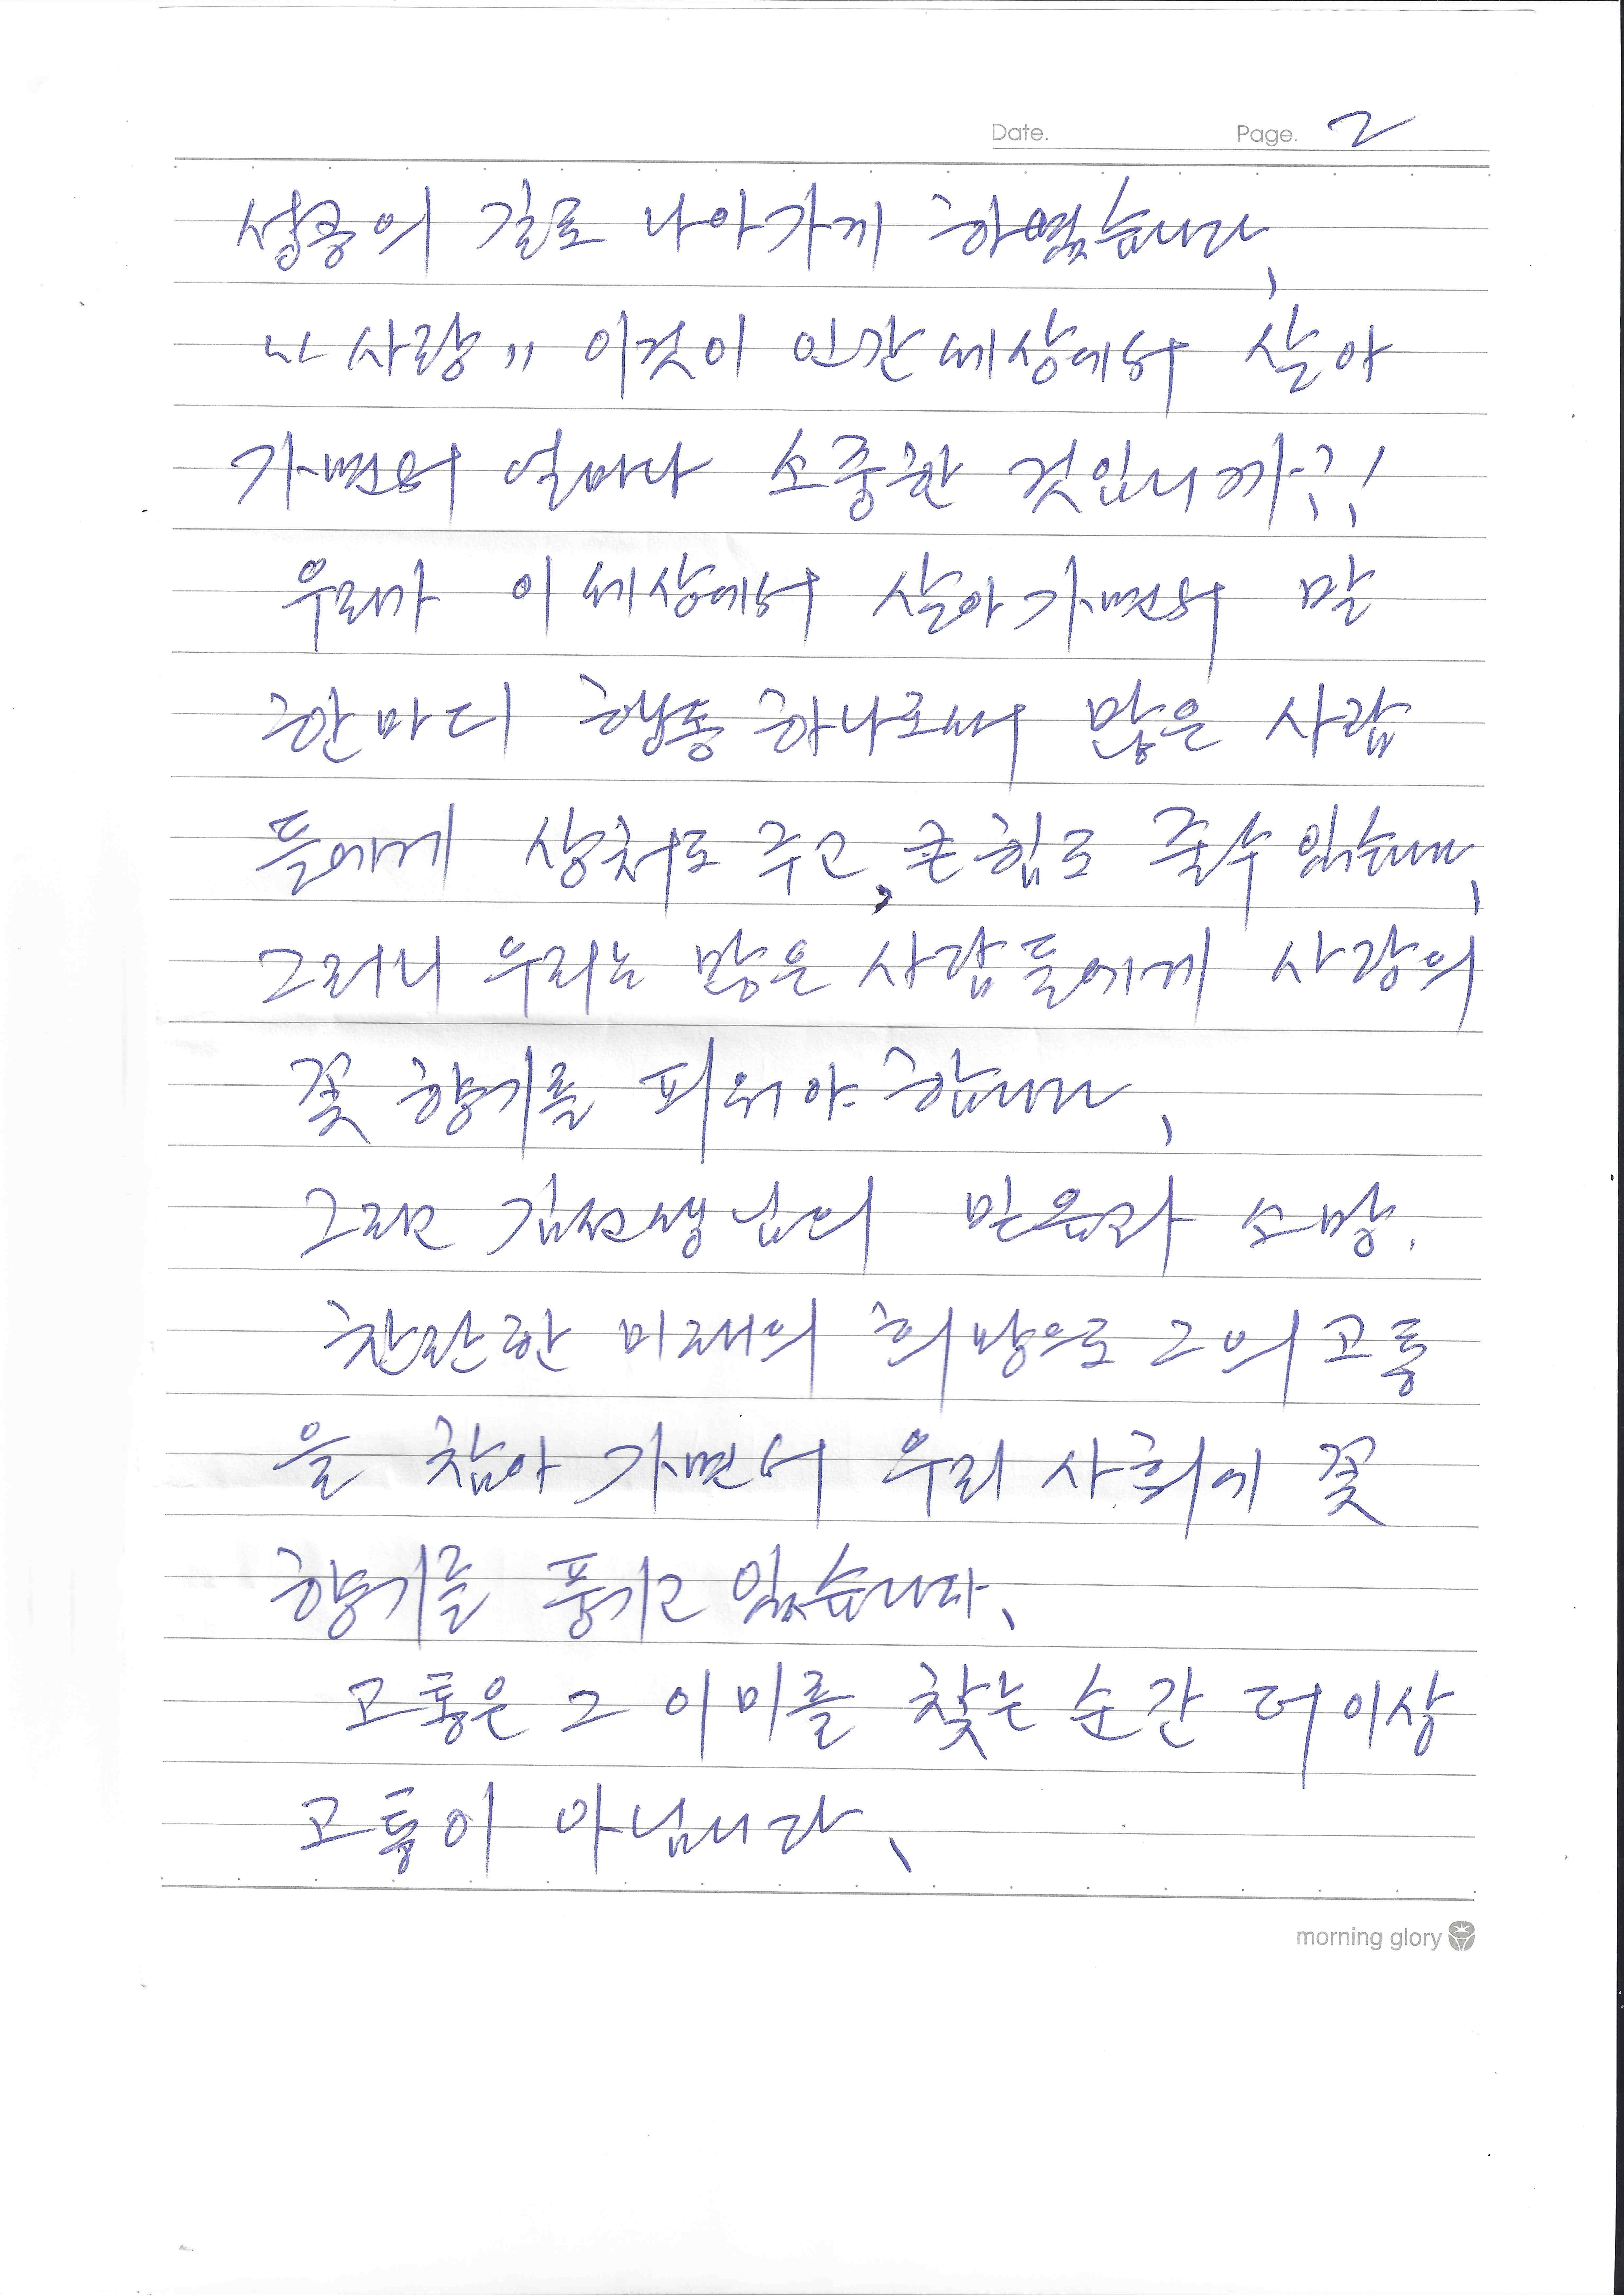 Date. Page. 2
성공의 길로 나아가게 하였습니다.
"사랑" 이것이 인간 세상에서 살아
가면서 얼마나 소중한 것입니까?!
우리가 이 세상에서 살아가면서 말
한마디 행동 하나로써 많은 사람
들에게 상처도 주고, 큰힘도 줄수 있습니다.
그러니 우리는 많은 사람들에게 사랑의
꽃 향기를 피워야 합니다.
그리고 김선생님의 믿음과 소망.
찬란한 미래의 희망으로 그의 고통
을 참아 가면서 우리 사회에 꽃
향기를 풍기고 있습니다.
고통은 그 이미를 찾는 순간 더이상
고통이 아닙니다.
morning glory